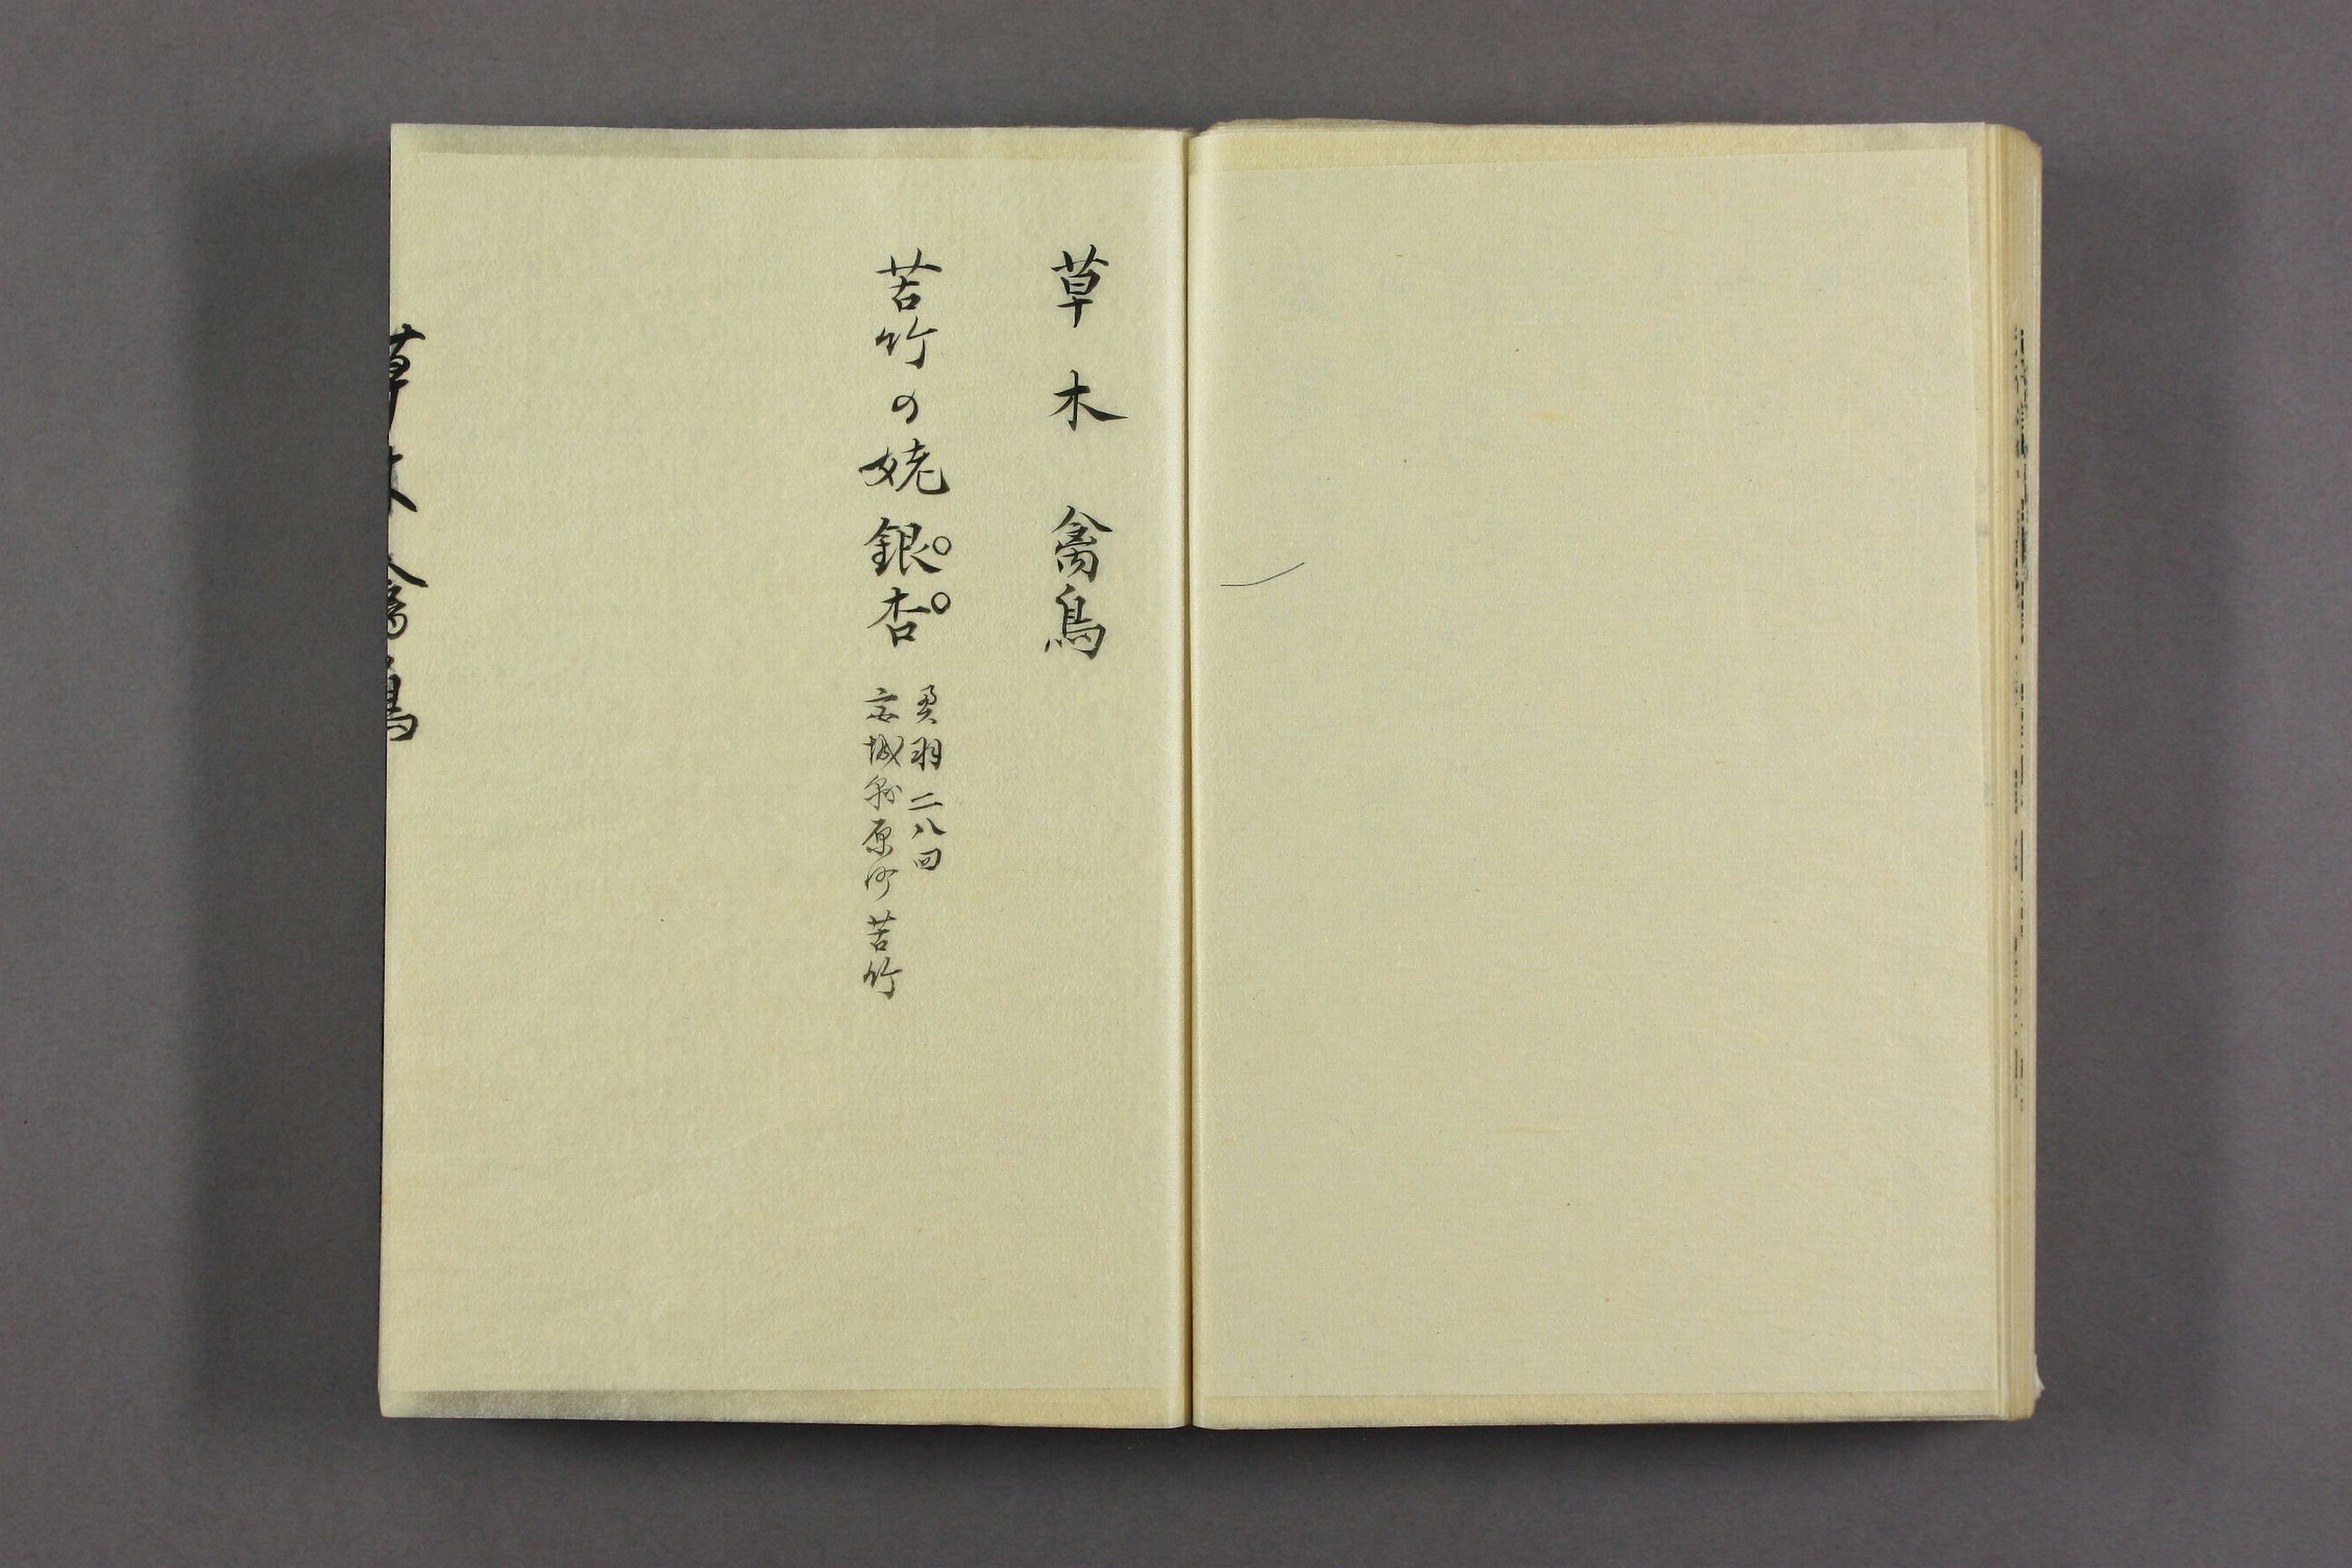 草木 禽鳥
苦竹の姥銀杏
奥羽 二八回
宮城郡原町苦竹
草木禽鳥